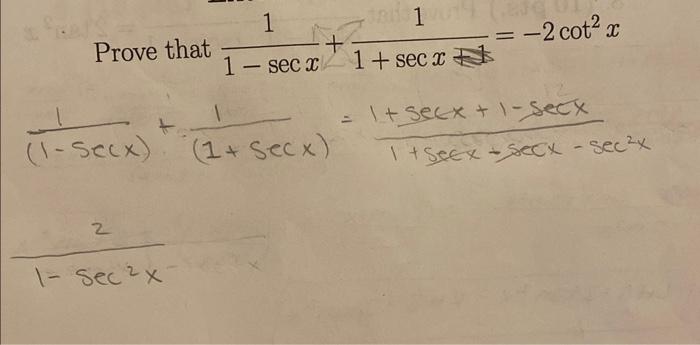 Prove that 1/(1 − sec x) + 1/(1 + sec x) = −2 cot² x
1/(1-secx) + 1/(1+secx) = (1+secx+1-secx)/(1+secx-secx-sec²x)
2/(1-sec²x)